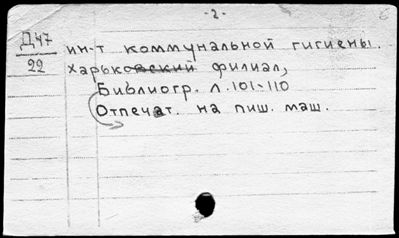 -2-
Д47
22
ин-т коммунальной гигиены.
Харьковский филиал,
Библиогр. л. 101-110
Отпечат. на пиш. маш.